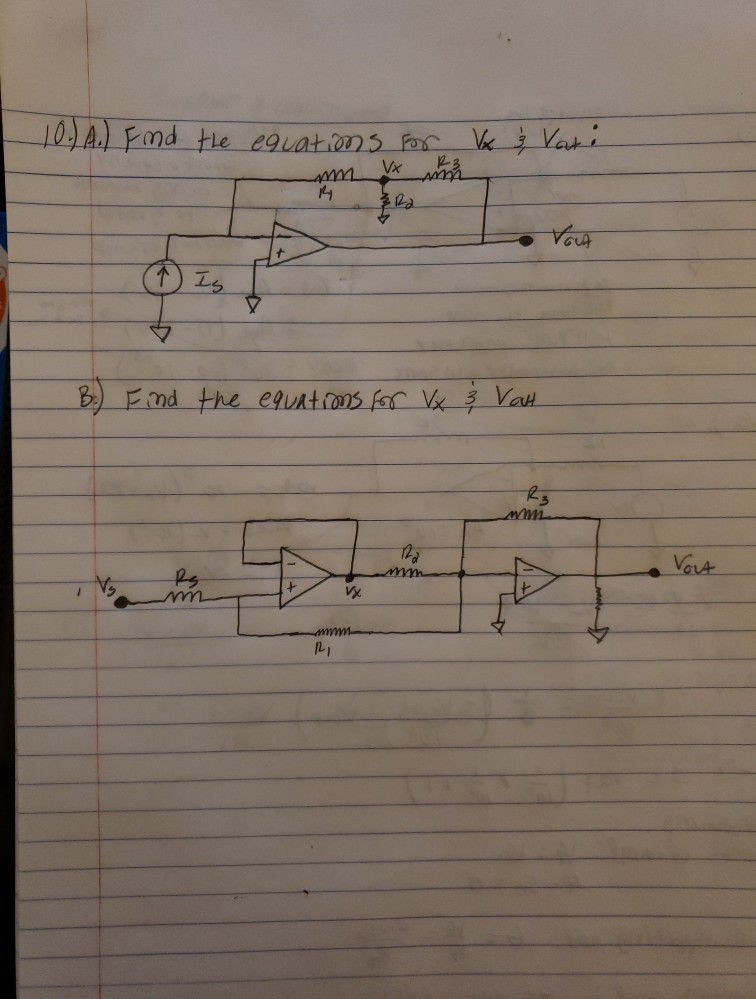 10.) A.) Find the equations for Vx & Vout:
Vx R3
R1
R2
- +
Vout
Is
B.) Find the equations for Vx & Vout
R3
R2
Vs Rs - + Vx - + Vout
R1